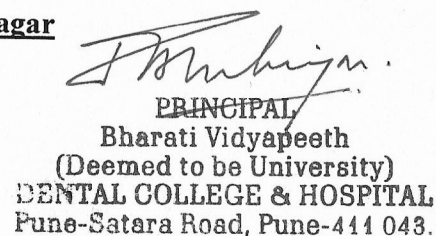 agar
PRINCIPAL
Bharati Vidyapeeth
(Deemed to be University)
DENTAL COLLEGE & HOSPITAL
Pune-Satara Road, Pune-411 043.